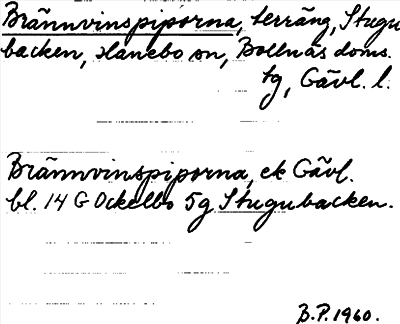 Brännvinspiporna, terräng, Stugu
backen, Hanebo sn, Bollnäs doms.
tg, Gävl. l.
Brännvinspiporna, ek Gävl.
bl. 14 G Ockelbo 5g Stugubacken.
B.P. 1960.